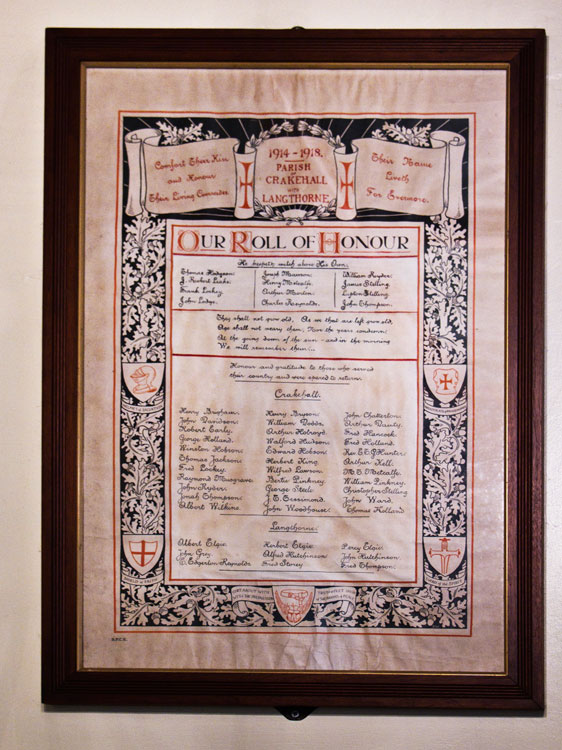 Comfort Their Kin
and Honour
Their Living Comrades
1914 - 1918.
PARISH
OF
CRAKEHALL
WITH
LANGTHORNE
Their Name
Liveth
For Evermore.
OUR ROLL OF HONOUR
He keepeth watch above His Own.
Thomas Hodgson. Joseph Marmon. William Ryder.
J. Herbert Leake. Henry Metcalfe. James Stelling.
Frank Linkey. Arthur Linton Stelling.
John Lodge. Charles Reynolds. John Thompson.
They shall not grow old, As we that are left grow old,
Age shall not weary them, Nor the years condemn;
At the going down of the sun and in the morning
We will remember them.
Honour and gratitude to those who served
their country and were spared to return.
Crakehall.
Henry Brigham. Henry Bryson. John Chatterton.
John Davidson. William Dodds. Arthur Dauty.
Robert Early. Arthur Holroyd. Fred Hancock.
George Holland. Walford Hudson. Fred Holland.
Winston Hobson. Edward Hobson. Rev. E. E. G. Hunter.
Thomas Jackson. Herbert King. Arthur Kell.
Fred Linkey. Wilfred Lawson. M. S. Metcalfe.
Raymond Musgrave. Bertie Pinkney. William Pinkney.
John Ryder. George Steele. Christopher Stelling.
Jonah Thompson. J. E. Sessimond. John Ward.
Albert Wilkins. John Woodhouse. Thomas Holland.
Langthorne.
Albert Elgie. Herbert Elgie. Percy Elgie.
John Grey. Alfred Hutchinson. John Hutchinson.
W. Edgerton Reynolds. Fred Storey. Fred Thompson.